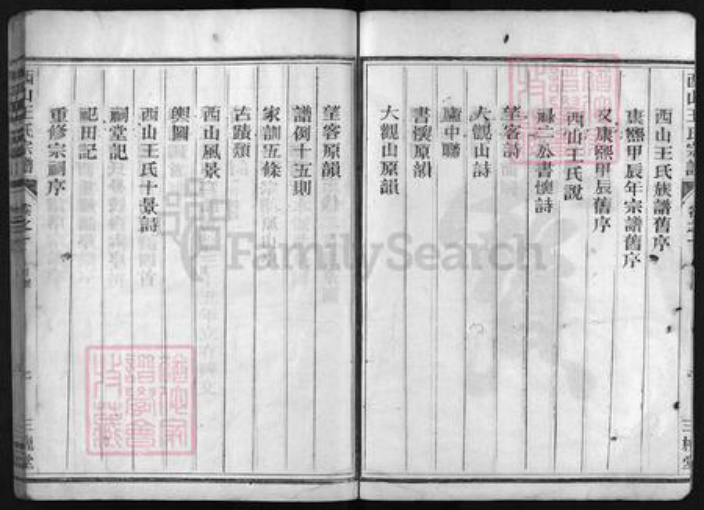 西山王氏宗譜
西山王氏族譜舊序
康熙甲辰年宗譜舊序
又康熙甲辰舊序
西山王氏說
福二公書懷詩
望客詩
大觀山詩
中聯
書懷原韻
大觀山原韻
三槐堂
望客原韻
譜例十五則
家訓五條
古蹟類
西山風景
輿圖
西山王氏十景詩
祠堂記
祀田記
重修宗祠序
西山王氏宗譜
三槐堂
FamilySearch